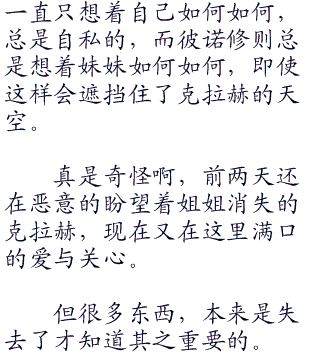 一直只想着自己如何如何，
总是自私的，而彼诺修则总
是想着妹妹如何如何，即使
这样会遮挡住了克拉赫的天
空。
真是奇怪啊，前两天还
在恶意的盼望着姐姐消失的
克拉赫，现在又在这里满口
的爱与关心。
但很多东西，本来是失
去了才知道其之重要的。